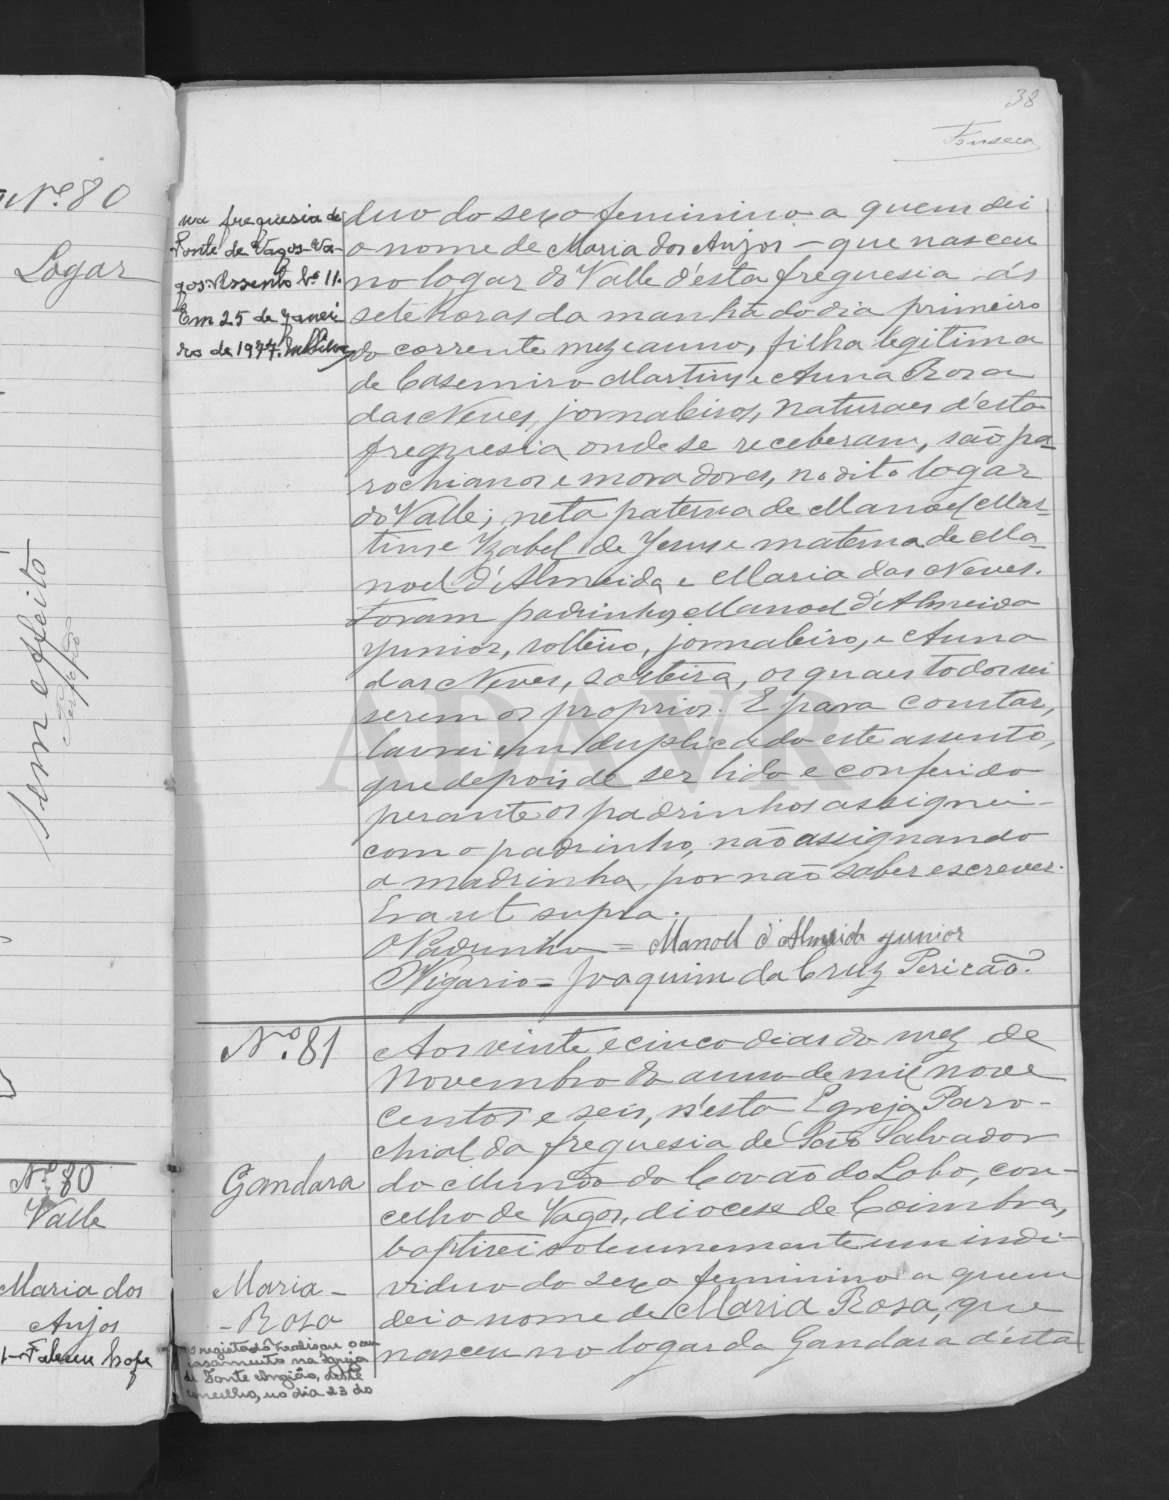 38
Fonseca
Nº 80
Logar
sem effeito
Nº 80
Valle
Maria dos
Anjos
1-Faleceu hoje
na freguesia de
Fonte de Vagos-Va-
gos. Assento Nº 11.
Em 25 de Janei
ro de 1977.
duo do sexo feminino a quem dei
o nome de Maria dos Anjos - que nasceu
no logar do Valle d'esta freguesia ás
sete horas da manhã do dia primeiro
do corrente mez e anno, filha legitima
de Casemiro Martins e Anna Rosa
das Neves, jornaleiros, naturaes d'esta
freguesia onde se receberam, são pa-
rochianos e moradores, no dito logar
do Valle; neta paterna de Manoel Mar-
tins e Izabel de Jesus e materna de Ma-
noel d'Almeida e Maria das Neves.
Foram padrinhos Manoel d'Almeida
Junior, solteiro, jornaleiro, e Anna
das Neves, solteira, os quaes todos sei
serem os proprios. E para constar,
lavrei em duplicado este assento,
que depois de ser lido e conferido
perante os padrinhos assignei-
com o padrinho, não assignando
a madrinha, por não saber escrever.
Era ut supra.
O Padrinho = Manoel d'Almeida Junior
O Vigario = Joaquim da Cruz Pericão.
Nº 81
Gandara
Maria -
- Rosa
O registado realisou o seu
casamento na Igreja
de Fonte Angião, deste
concelho, no dia 23 do
Aos vinte e cinco dias do mez de
Novembro do anno de mil nove
centos e seis, n'esta Egreja Paro-
chial da freguesia de São Salvador
do Mundo do Covão do Lobo, con-
celho de Vagos, diocese de Coimbra,
baptisei solemnemente um indi-
viduo do sexo feminino a quem
dei o nome de Maria Rosa, que
nasceu no logar da Gandara d'esta
ADAVR